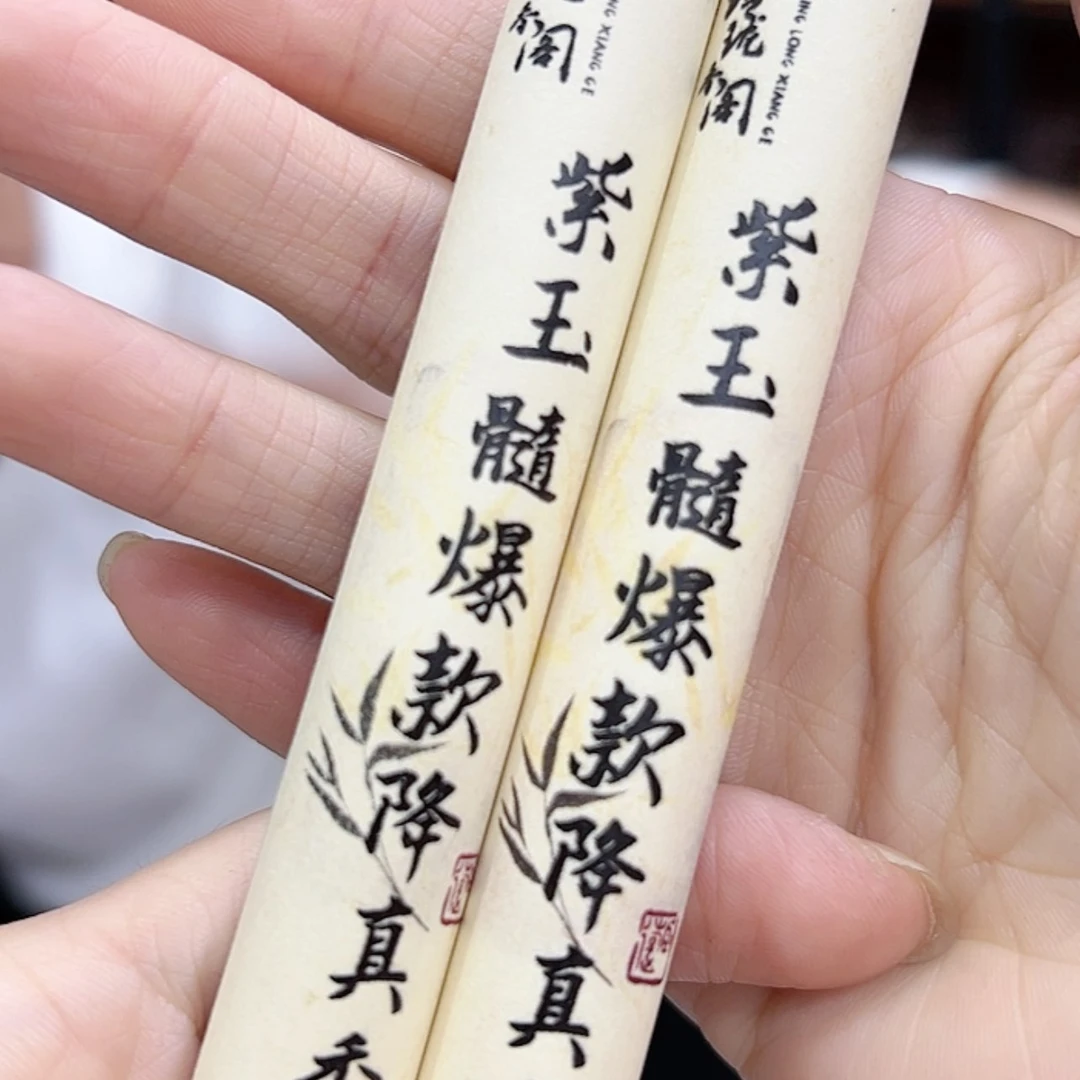 阁
NG XIANG GE
紫玉髓爆款降真香
珑
阁
ING LONG XIANG GE
紫玉髓爆款降真